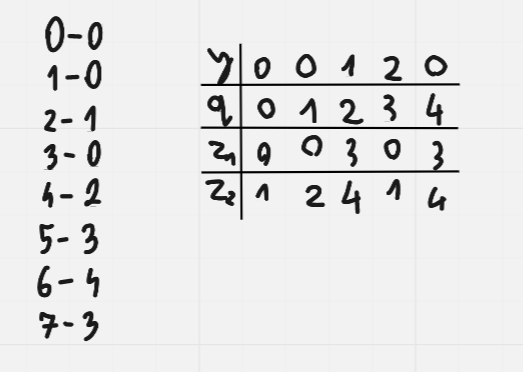 0-0
1-0
2-1
3-0
4-2
5-3
6-4
7-3
y 0 0 1 2 0
q 0 1 2 3 4
z1 0 0 3 0 3
z2 1 2 4 1 4